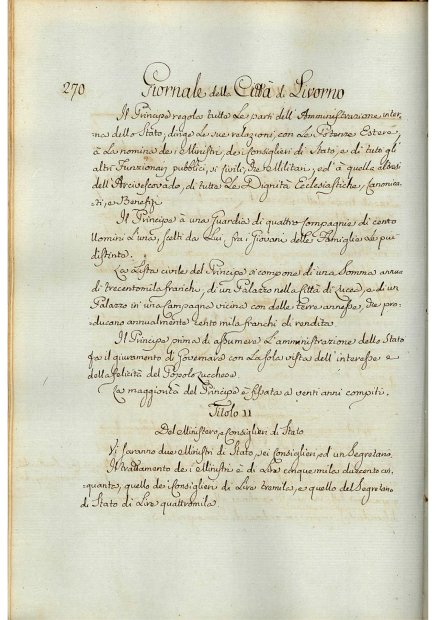 270 Giornale della Città di Livorno
Il Principe regola tutte Le parti dell'Amministrazione inter,
na dello Stato, dirige Le sue relazioni, con Le Potenze Estere,
à La nomina dei Ministri, dei Consiglieri di Stato, e di tutti gli
altri Funzionarj pubblici, sì Civili, che Militari, ed à quelle altresì
dell'Arcivescovado, di tutte Le Dignità Ecclesiastiche, Canonica,
ti, e Benefizj.
Il Principe à una Guardia di quattro Compagnie di cento
Uomini L'una, scelti da Lui, fra i Giovani delle Famiglie Le più
distinte.
La Lista civile del Principe si compone di una Somma annua
di trecentomila franchi, di un Palazzo nella Città di Lucca, e di un
Palazzo in una Campagna vicina con delle terre annesse, che pro-
ducano annualmente cento mila franchi di rendita.
Il Principe prima di assumere L'amministrazione dello Stato
fa il giuramento di Governare con La sola vista dell'interesse e
della felicità del Popolo Lucchese.
La maggiorità del Principe è fissata a venti anni compiti.
Titolo II
Del Ministero, e Consiglieri di Stato.
Vi saranno due Ministri di Stato, sei Consiglieri, ed un Segretario.
Il trattamento dei Ministri è di Lire cinquemila duecento cin,
quanta, quello dei Consiglieri di Lire tremila, e quello del Segretario
di Stato di Lire quattromila.